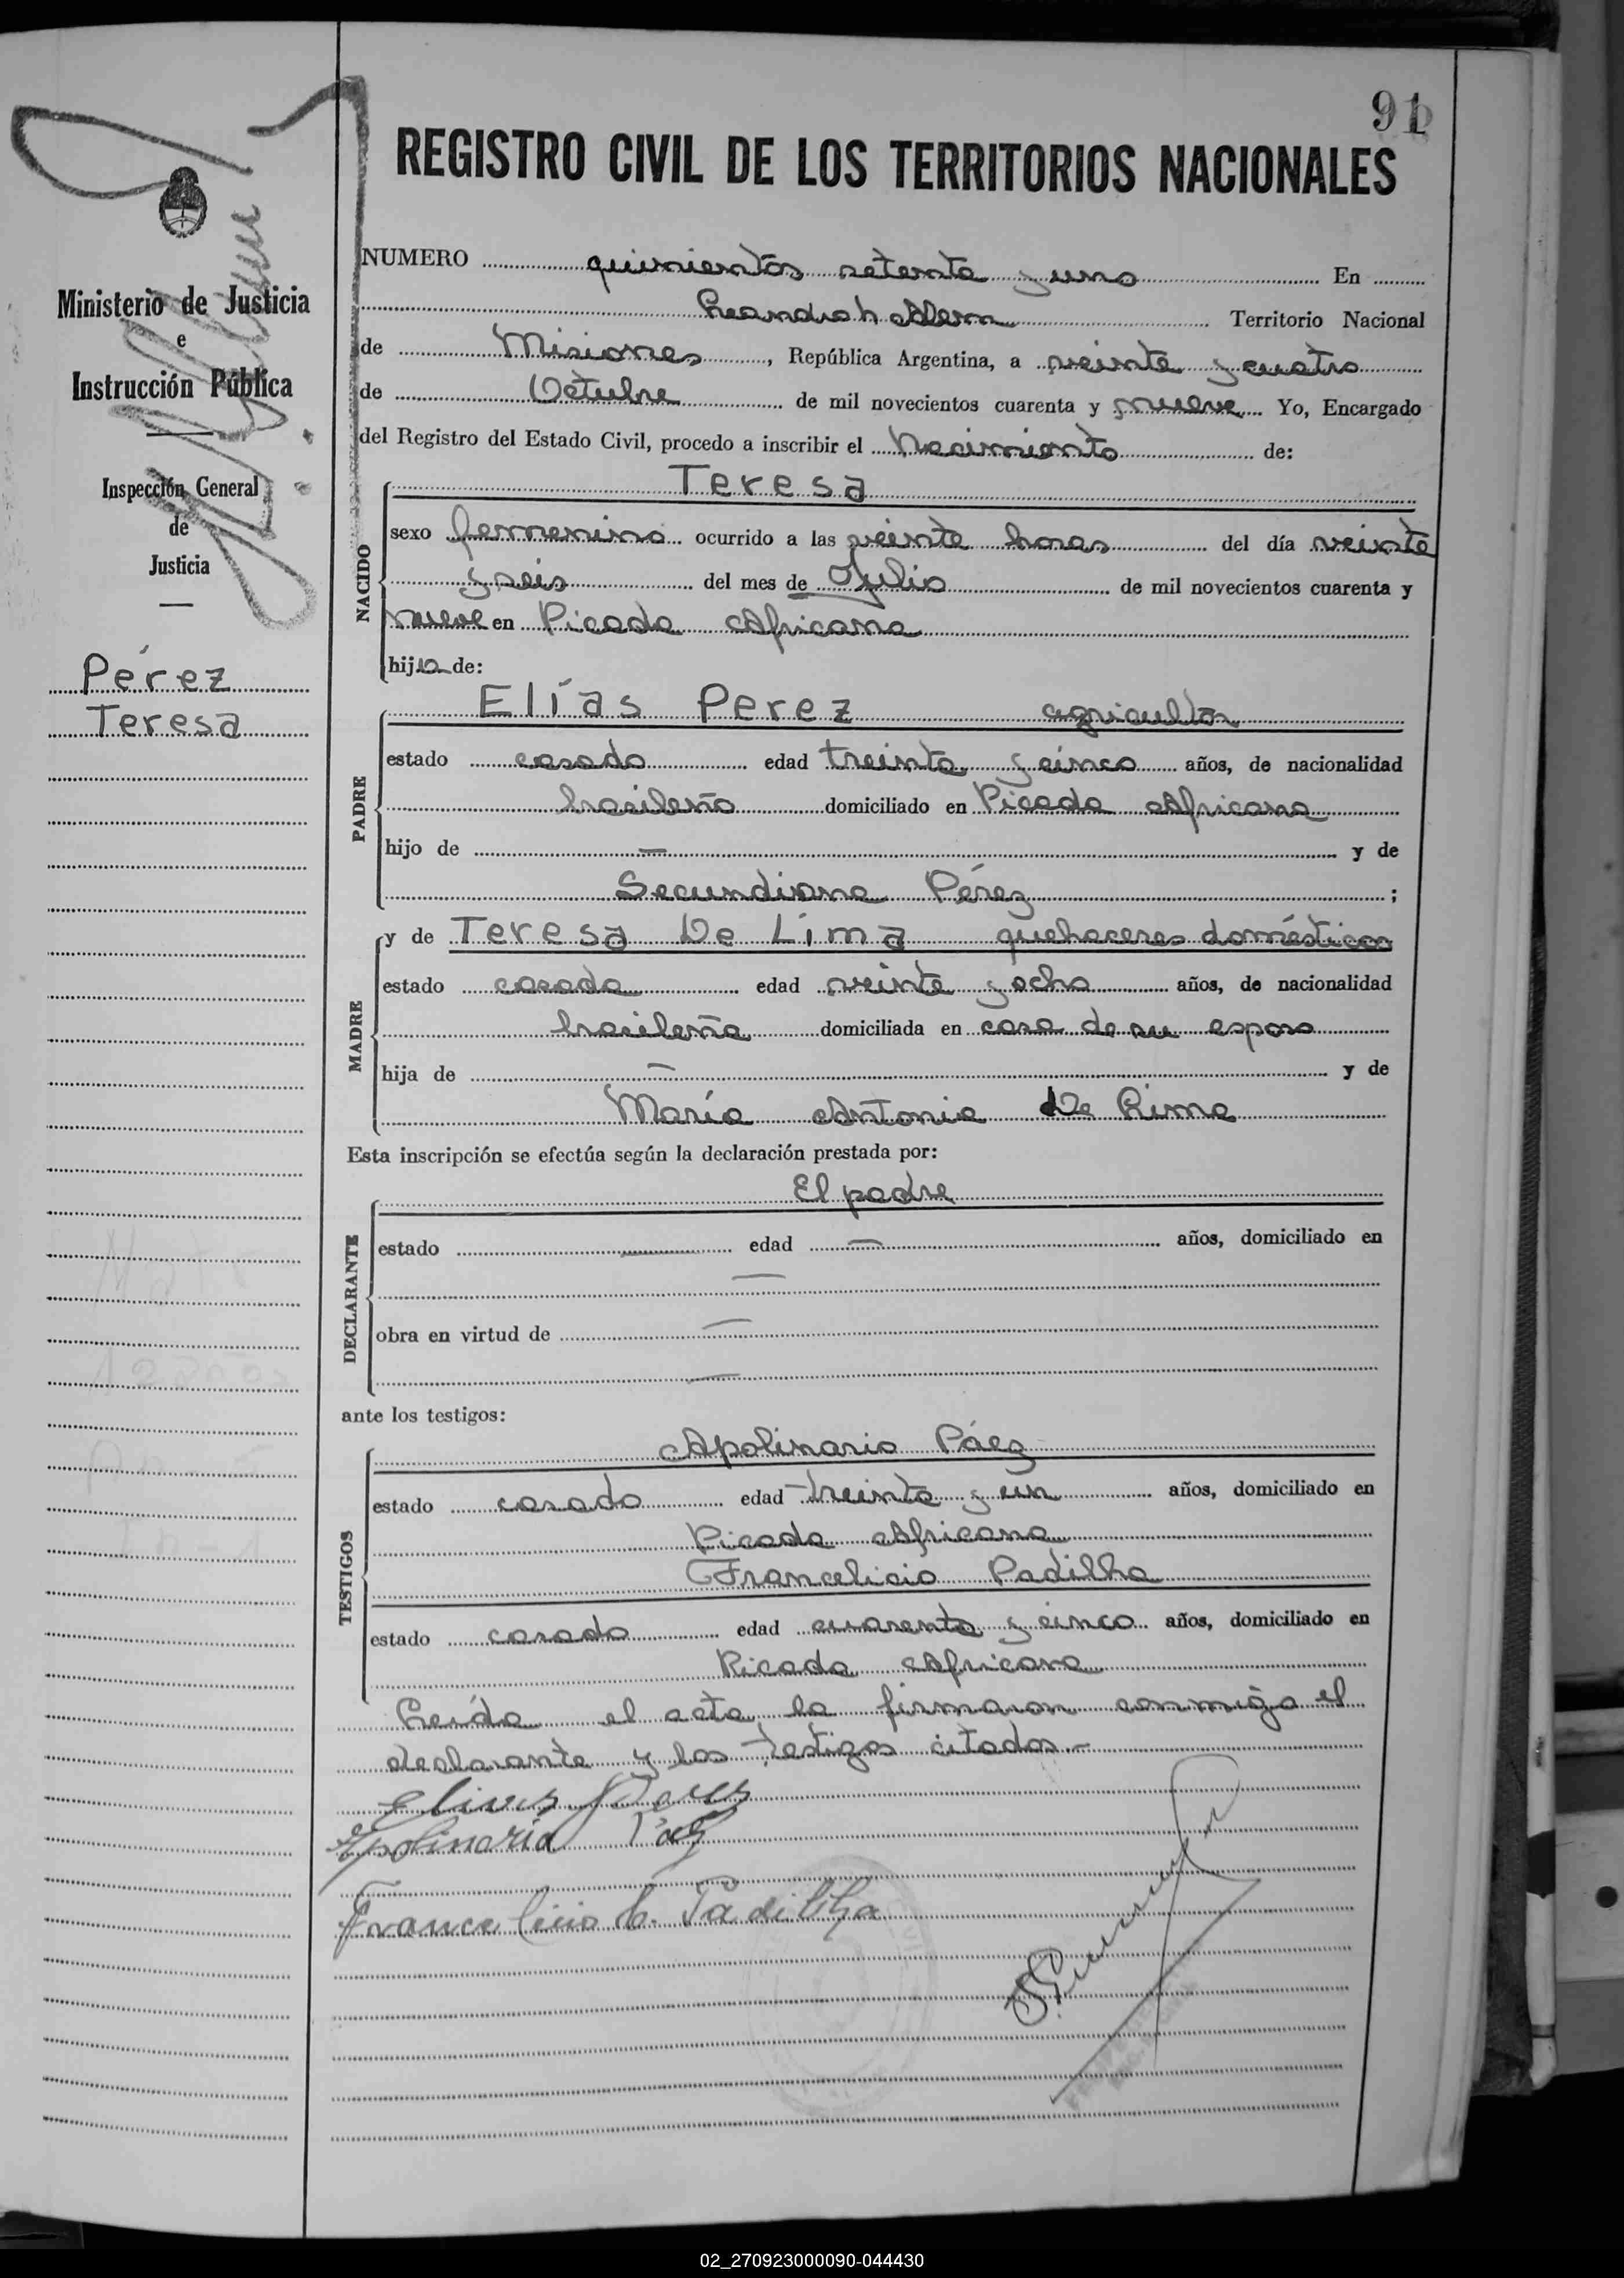 91
REGISTRO CIVIL DE LOS TERRITORIOS NACIONALES
Ministerio de Justicia
e
Instrucción Pública
Inspección General
de
Justicia
Pérez
Teresa
NUMERO quinientos setenta y uno En
Leandro N Alem Territorio Nacional
de Misiones, República Argentina, a veinte y cuatro
de Octubre de mil novecientos cuarenta y nueve Yo, Encargado
del Registro del Estado Civil, procedo a inscribir el Nacimiento de:
NACIDO
Teresa
sexo femenino ocurrido a las veinte horas del día veinte
y seis del mes de Julio de mil novecientos cuarenta y
nueve en Picada Africana
hija de:
PADRE
Elías Perez agricultor
estado casado edad treinta y cinco años, de nacionalidad
brasileño domiciliado en Picada Africana
hijo de — y de
Secundiana Pérez ;
MADRE
y de Teresa De Lima quehaceres domésticos
estado casada edad veinte y ocho años, de nacionalidad
brasileña domiciliada en casa de su esposo
hija de — y de
María Antonia De Lima
Esta inscripción se efectúa según la declaración prestada por:
DECLARANTE
El padre
estado — edad — años, domiciliado en
—
obra en virtud de —
—
ante los testigos:
TESTIGOS
Apolinario Páez
estado casado edad treinta y un años, domiciliado en
Picada Africana
Francelicio Padilha
estado casado edad cuarenta y cinco años, domiciliado en
Picada Africana
Leída el acta la firmaron conmigo el
declarante y los testigos citados.—
Elias Peres
Apolinario Páez
Francelicio Padilha
02_270923000090-044430